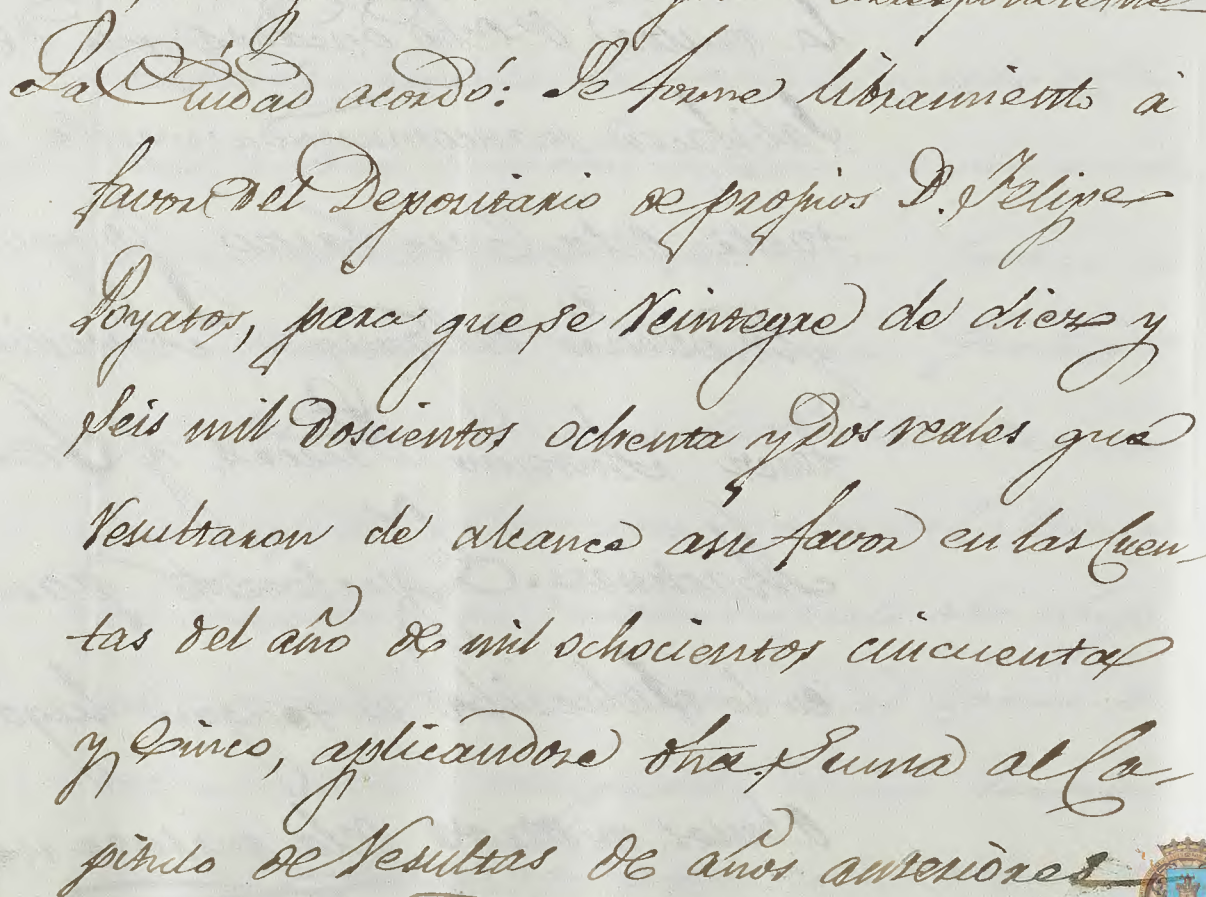 La Ciudad acordó: Se forme libramiento á
favor del Depositario de propios D. Felipe
Poyatos, para que se reintegre de diez y
seis mil doscientos ochenta y dos reales que
resultaron de alcance a su favor en las cuen-
tas del año de mil ochocientos cincuenta
y cinco, aplicandose dha. suma al Ca-
pitulo de resultas de años anteriores